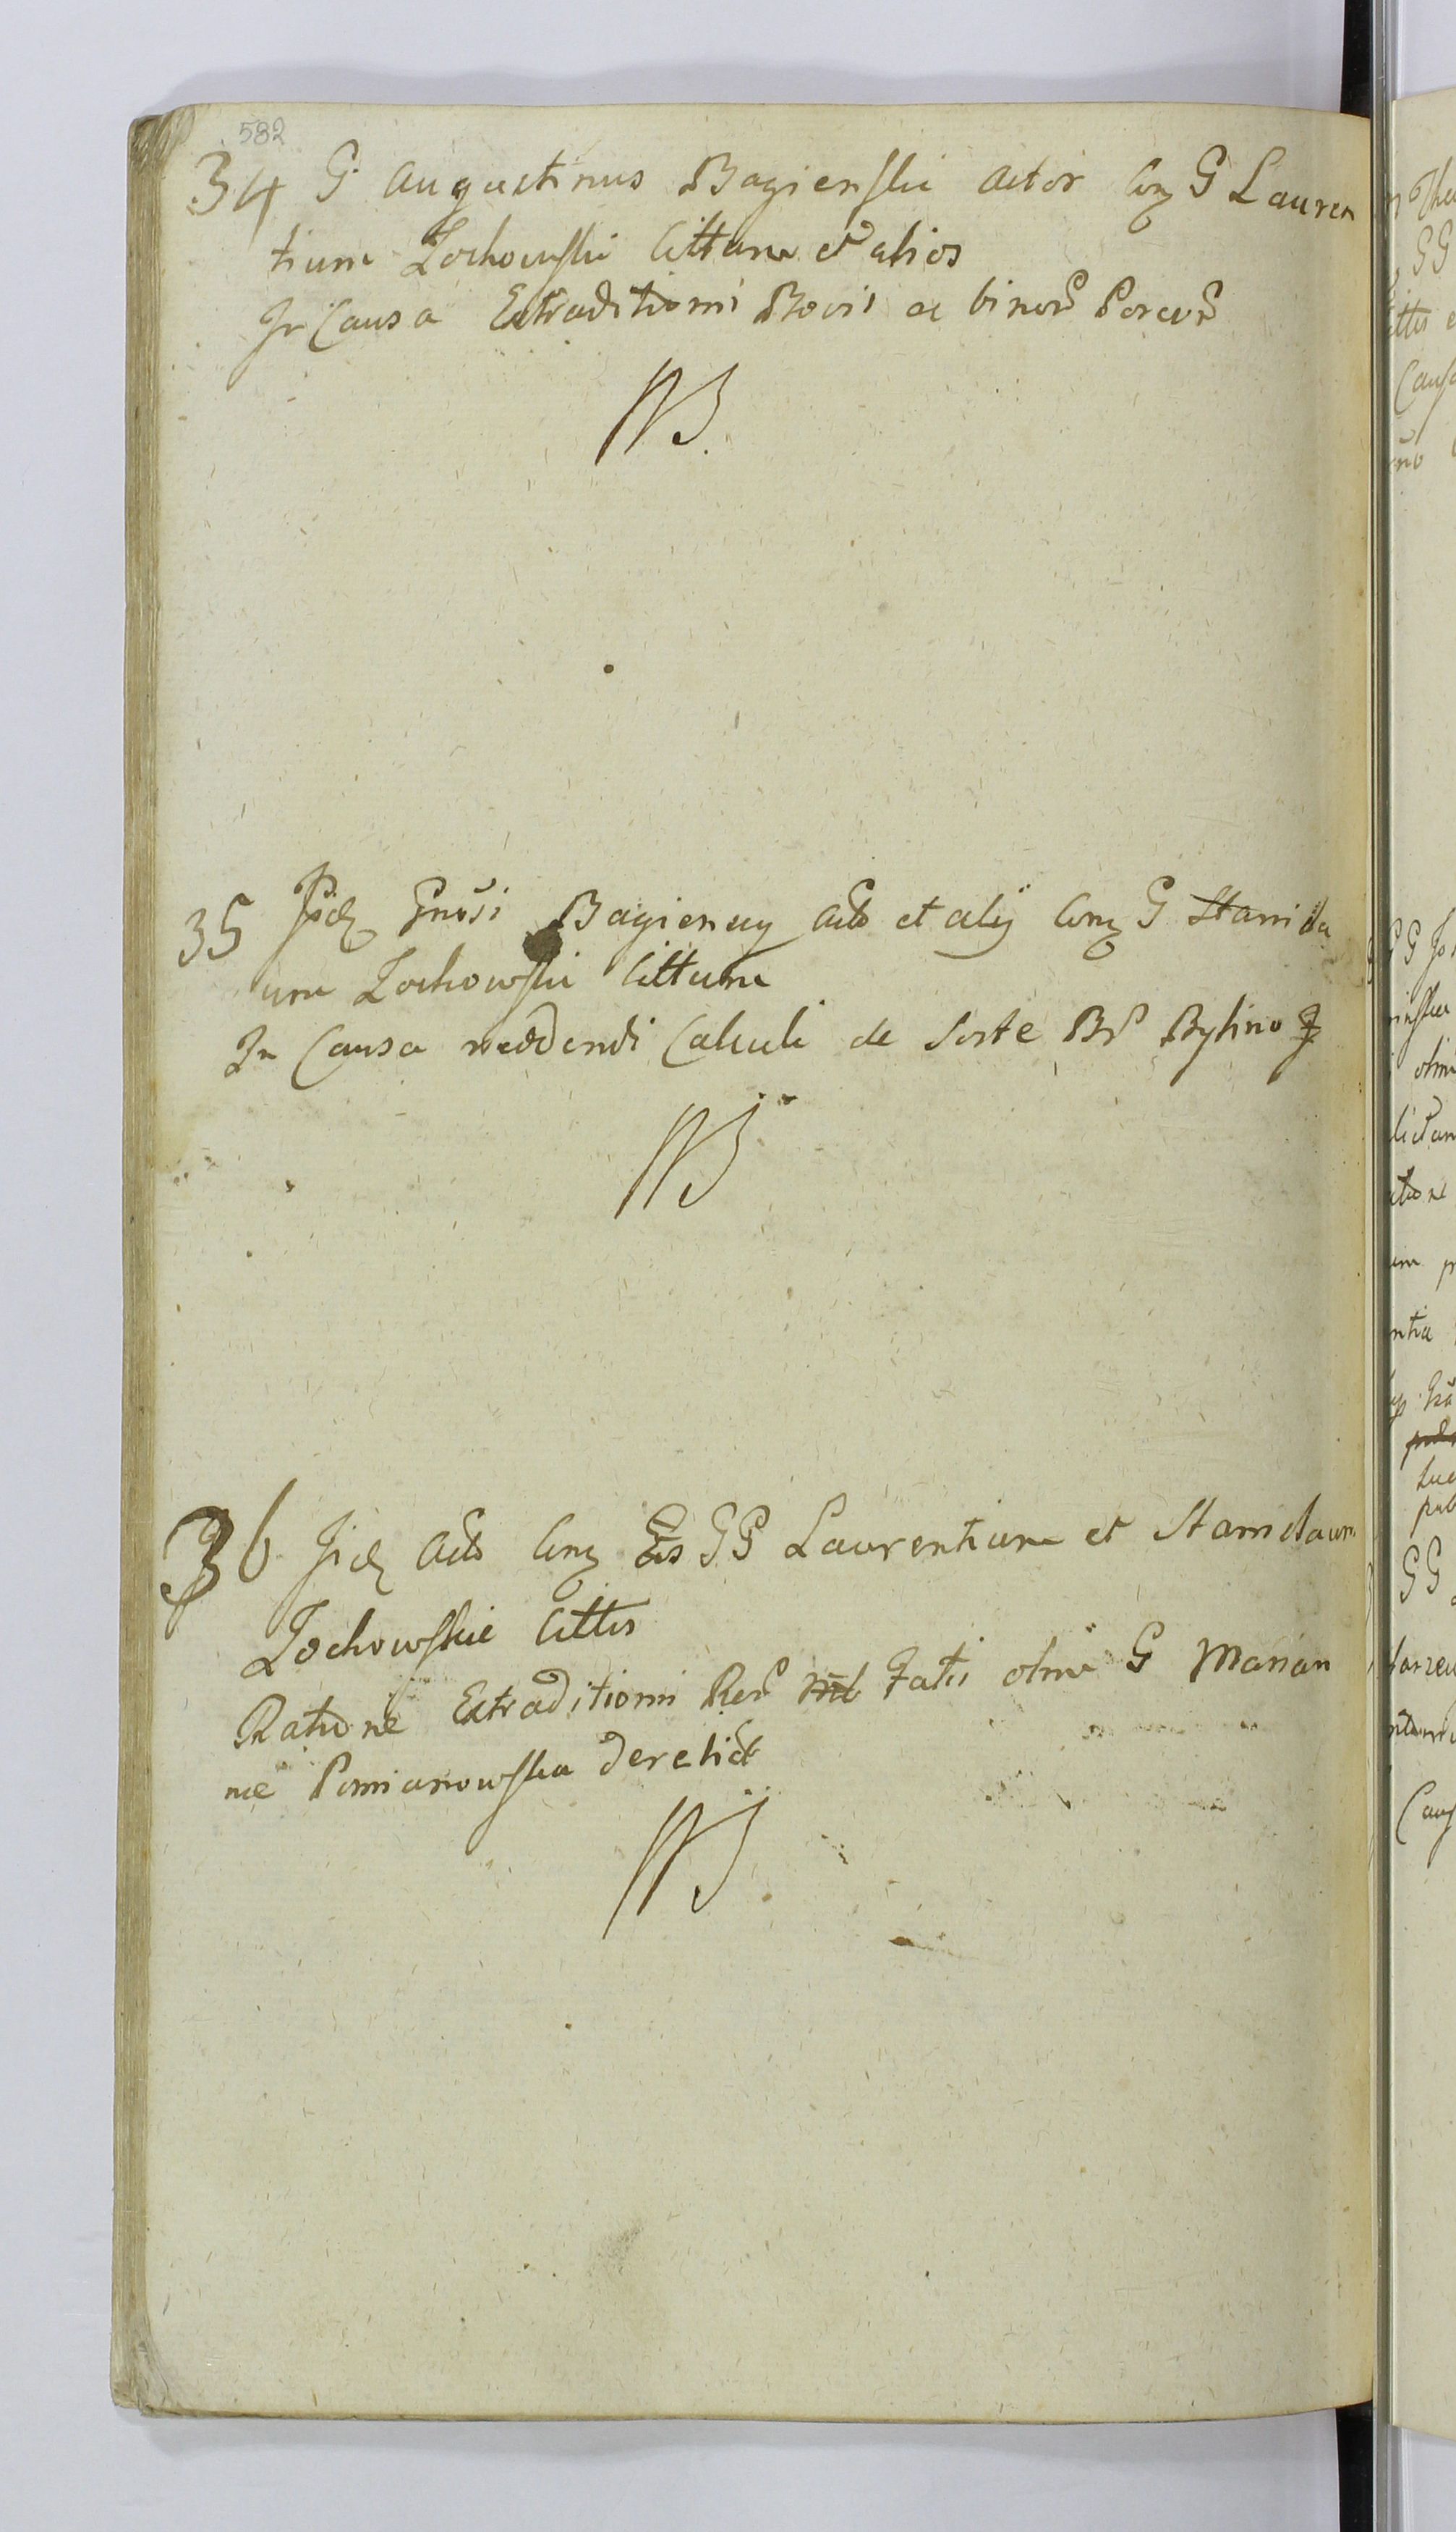 582
34 G Augustinus Bagienski Actor Con G Lauren
tium Zochowski Cittum et alios
In Causa Extraditionis Bovis ac binor Porcor
NB.
35 Iid Gnosi Bagienscy Acto et alij Con G Stanisla
um Zochowski Cittum
In Causa reddendi Calculi de Sorte Br Bylino
NB
36 Iid Acto Con Eos GG Laurentium et Stanislaum
Zochowskie Cittos
Ratione Extraditionis Rer Fatis olim G Marian
nae Pomianowska derelict
NB